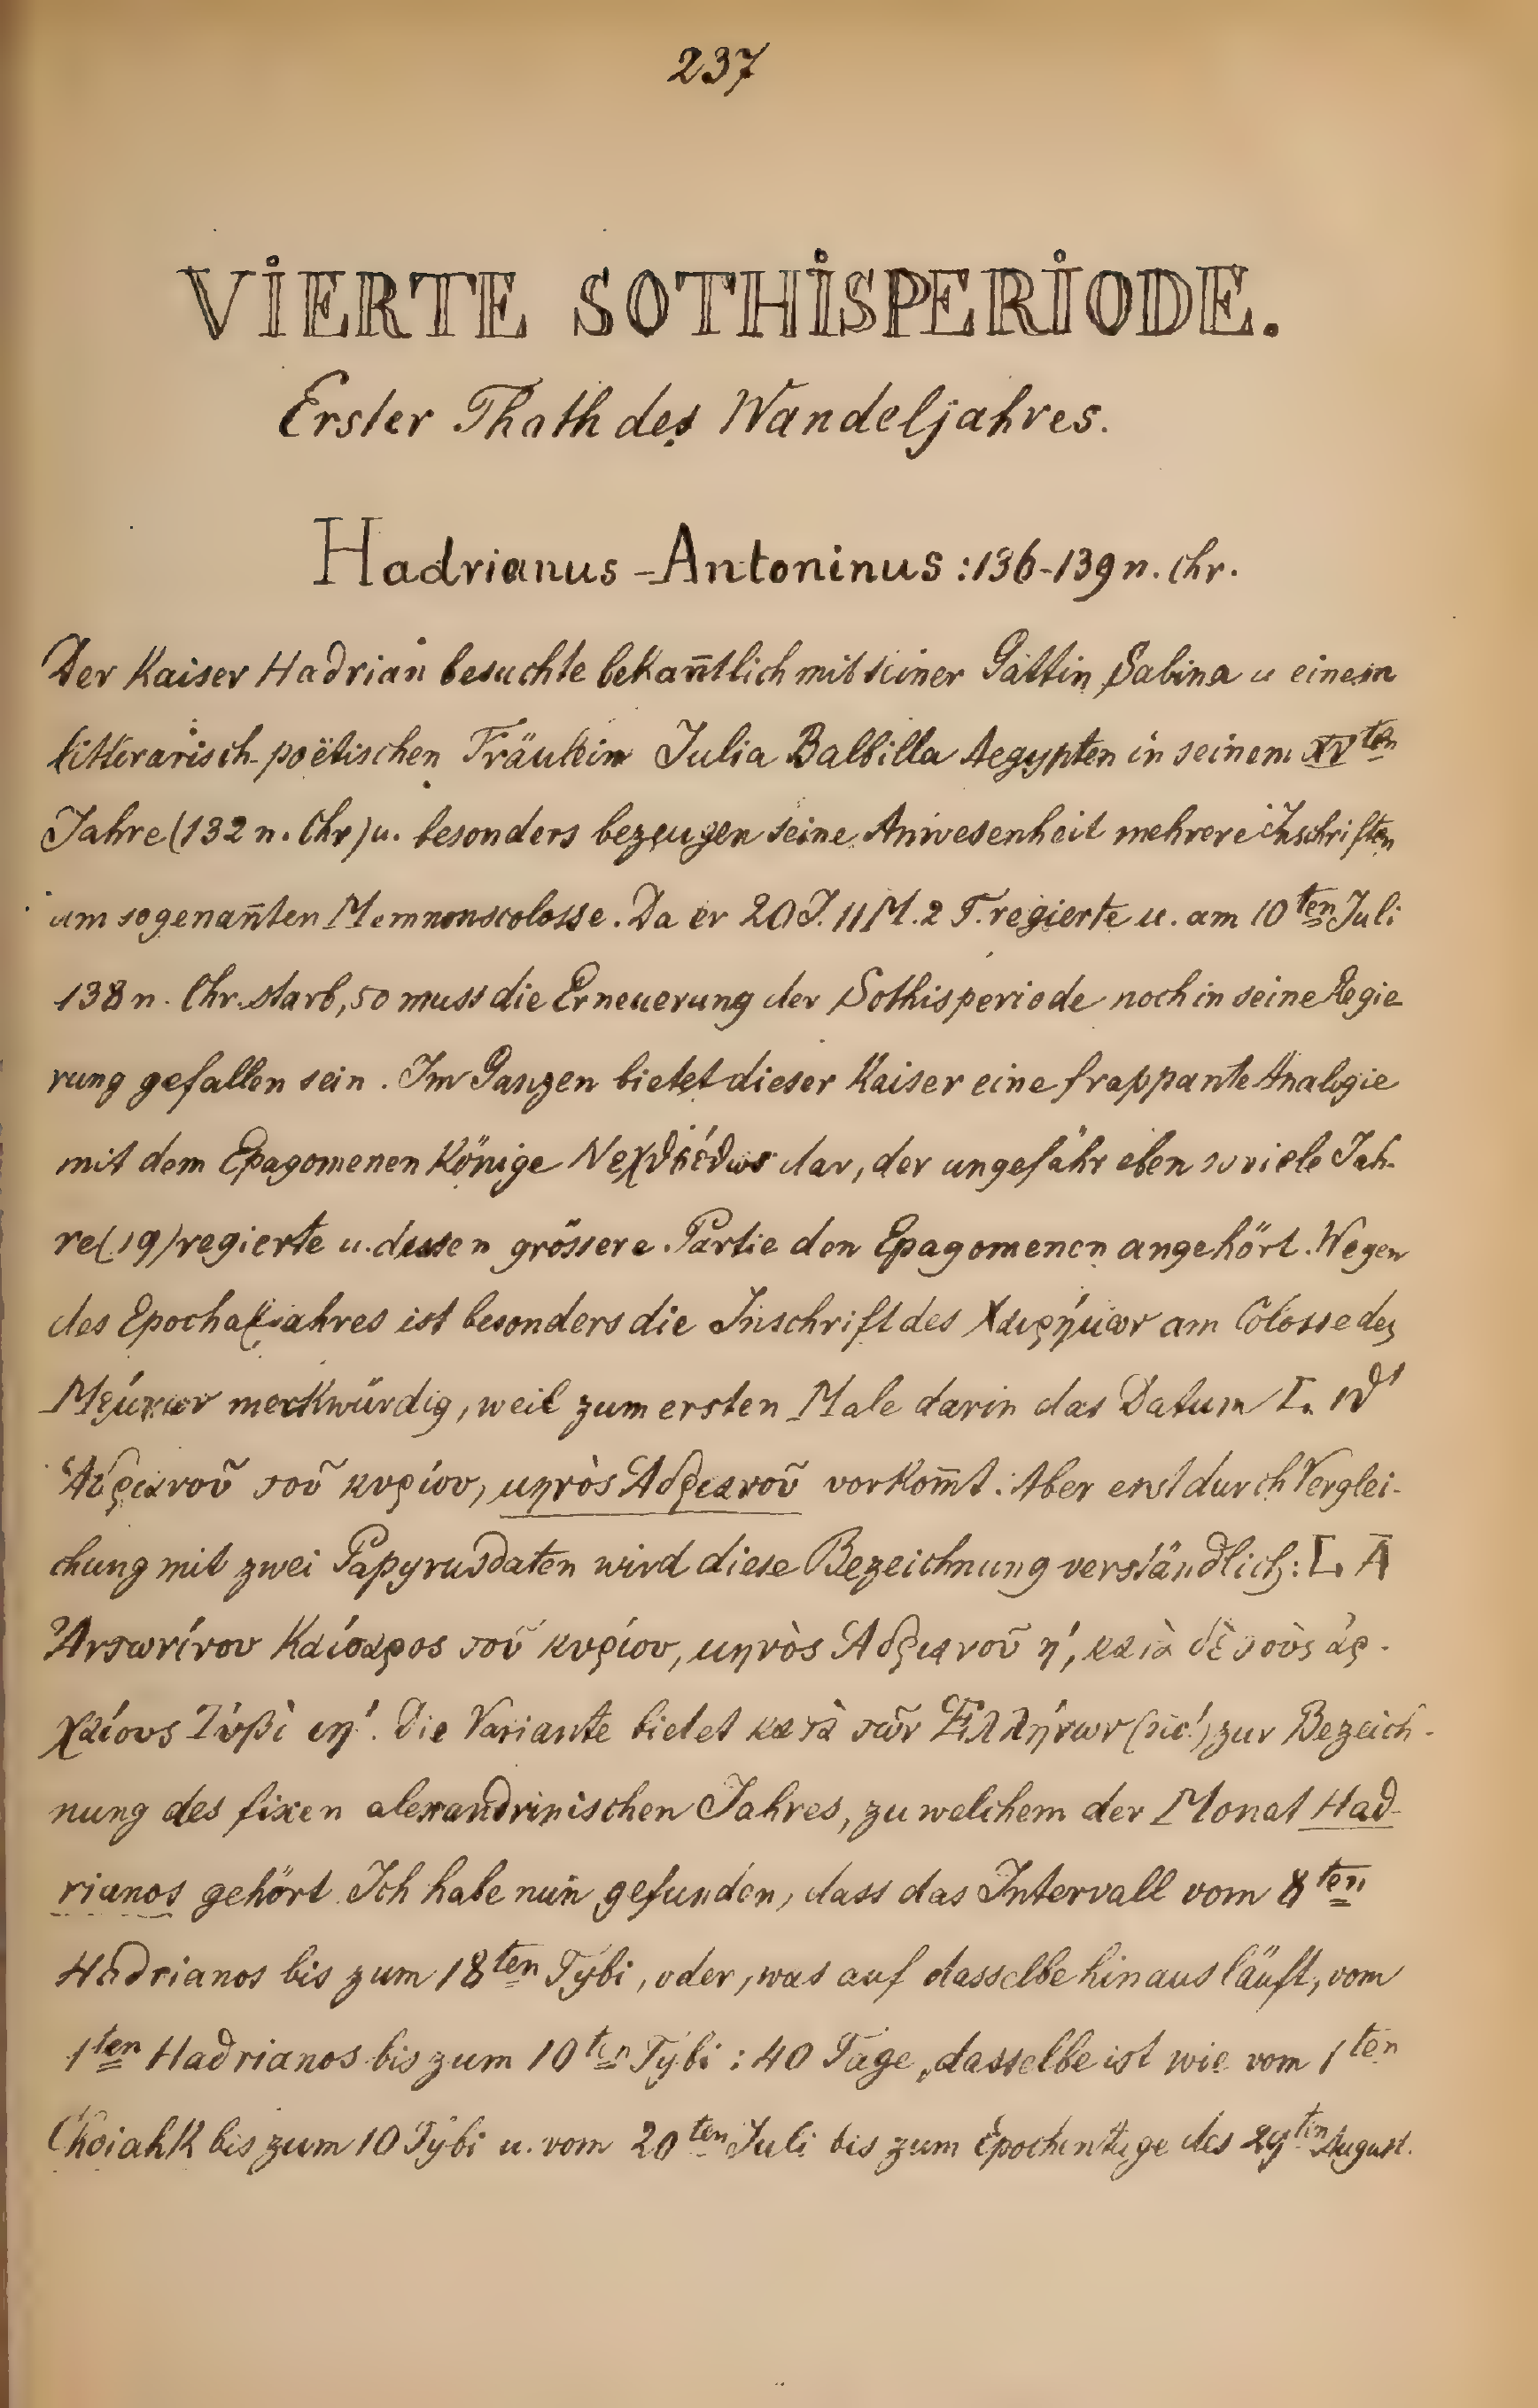 237
VIERTE SOTHISPERIODE.
Erster Thoth des Wandeljahres.
Hadrianus - Antoninus : 136-139 n. Chr.
Der Kaiser Hadrian besuchte bekan̄tlich mit seiner Gattin Sabina u einem
litterarisch-poëtischen Fräulein Julia Balbilla Aegypten in seinem XVten
Jahre (132 n. Chr) u. besonders bezeugen seine Anwesenheit mehrere Inschriften
am sogenan̄ten Memnonscolosse. Da er 20 J. 11 M. 2 T. regierte u. am 10ten Juli
138 n. Chr. starb, so muss die Erneuerung der Sothisperiode noch in seine Regie-
rung gefallen sein. Im Ganzen bietet dieser Kaiser eine frappante Analogie
mit dem Epagomenen Könige dar, der ungefähr eben so viele Jah-
re (19) regierte u. dessen grössere Partie den Epagomenen angehört. Wegen
des Epochaljahres ist besonders die Inschrift des Χαιρήμων am Colosse des
Μέμνων merkwürdig, weil zum ersten Male darin das Datum L. ιθ'
Ἁδριανοῦ τοῦ κυρίου, μηνὸς Ἁδριανοῦ vorkom̄t. Aber erst durch Verglei-
chung mit zwei Papyrusdaten wird diese Bezeichnung verständlich: L. Ā
Ἀντωνίνου Καίσαρος τοῦ κυρίου, μηνὸς Ἁδριανοῦ η', κατὰ δὲ τοὺς ἀρ-
χαίους Τύβὶ ιη'. Die Variante bietet κατὰ τῶν Ἑλλήνων (sic!) zur Bezeich-
nung des fixen alexandrinischen Jahres, zu welchem der Monat Had-
rianos gehört. Ich habe nun gefunden, dass das Intervall vom 8ten
Hadrianos bis zum 18ten Tybi, oder, was auf dasselbe hinausläuft, vom
1ten Hadrianos bis zum 10ten Tybi : 40 Tage, dasselbe ist wie vom 1ten
Choiahk bis zum 10 Tybi u. vom 20ten Juli bis zum Epochentage des 29ten August.